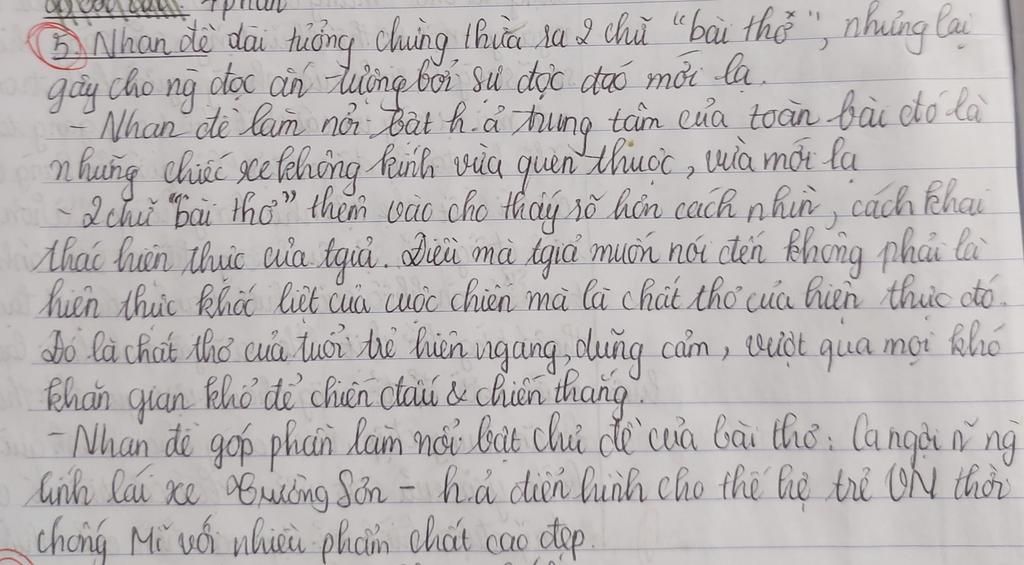 4 phần
5. Nhan đề dài tưởng chừng thừa ra 2 chữ "bài thơ", nhưng lại
gây cho ng đọc ấn tượng bởi sự độc đáo mới lạ.
- Nhan đề làm nổi bật h.ả trung tâm của toàn bài đó là
những chiếc xe không kính vừa quen thuộc, vừa mới lạ
- 2 chữ "bài thơ" thêm vào cho thấy rõ hơn cách nhìn, cách khai
thác hiện thực của tgiả. Điều mà tgiả muốn nói đến không phải là
hiện thực khốc liệt của cuộc chiến mà là chất thơ của hiện thực đó.
Đó là chất thơ của tuổi trẻ hiên ngang, dũng cảm, vượt qua mọi khó
khăn gian khổ để chiến đấu & chiến thắng.
- Nhan đề góp phần làm nổi bật chủ đề của bài thơ: Ca ngợi n~ ng
lính lái xe Trường Sơn - h.ả điển hình cho thế hệ trẻ VN thời
chống Mĩ với nhiều phẩm chất cao đẹp.